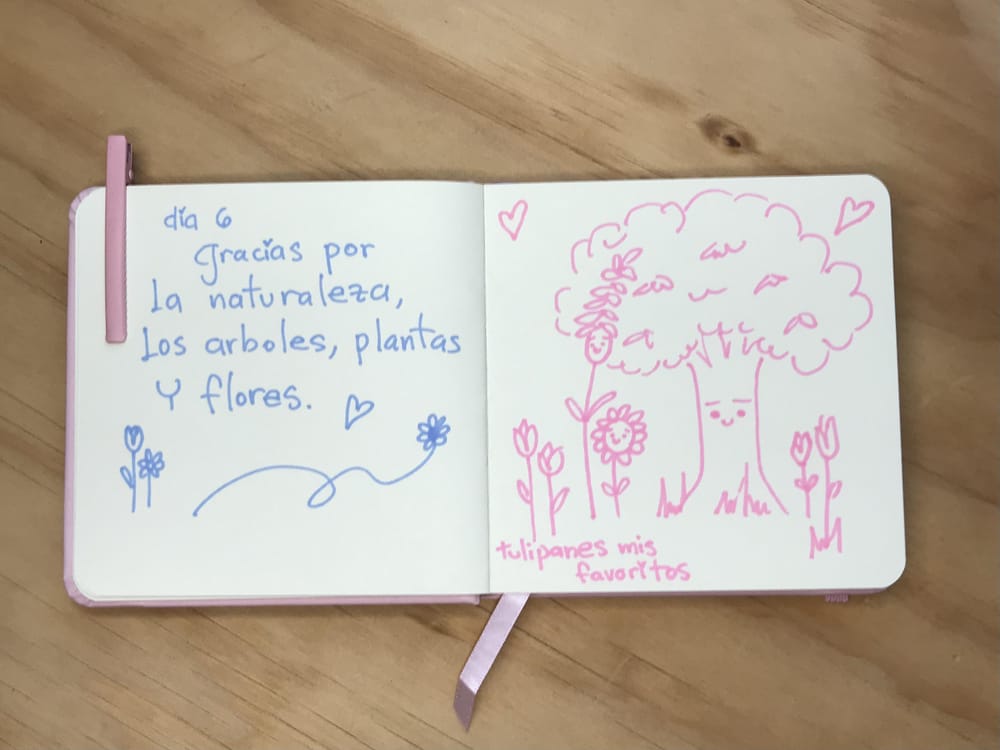 día 6
gracias por
la naturaleza,
Los arboles, plantas
y flores.
tulipanes mis
favoritos